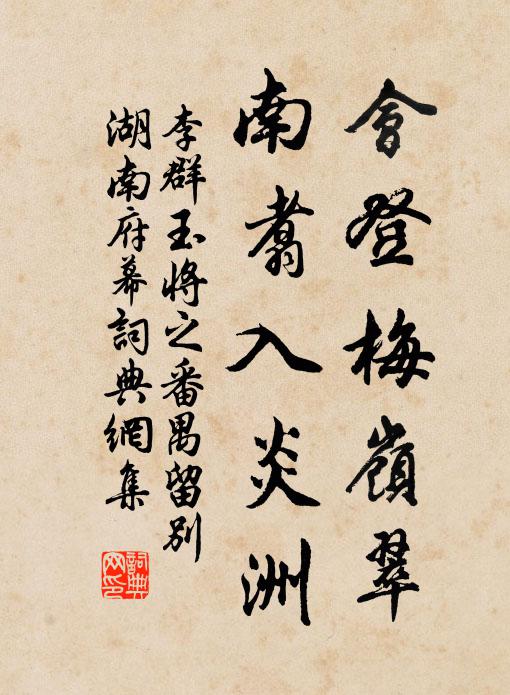 會登梅嶺翠
南翥入炎洲
李群玉將之番禺留別
湖南府幕詞典網集
詞典網印